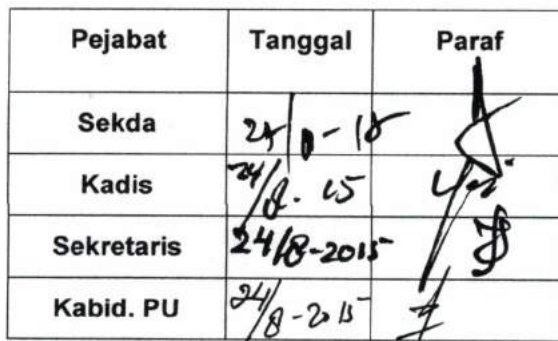 Pejabat Tanggal Paraf
Sekda
Kadis 24/8-15
Sekretaris 24/8-2015
Kabid. PU 24/8-2015